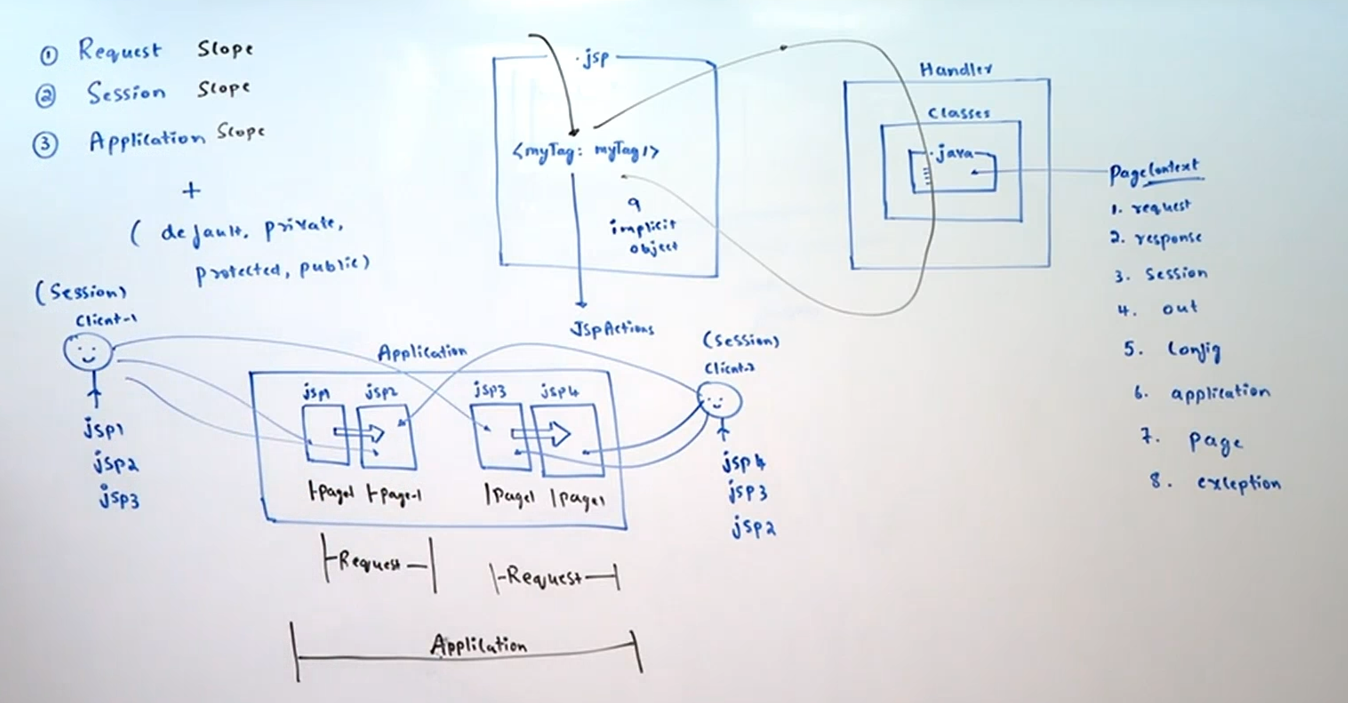 ① Request Slope
② Session Slope
③ Application Slope
+
( default, private,
protected, public)
.jsp
<myTag: myTag1>
9
implicit
object
JSpActions
Handler
Classes
.java
PageContext
1. request
2. response
3. Session
4. out
5. Config
6. application
7. page
8. exception
(Session)
Client-1
jsp1
jsp2
jsp3
Application
jsp1 jsp2 jsp3 jsp4
|-page1 |-page-1 |page1 |page1
|-Request-|
|-Request-|
Application
(Session)
Client-2
jsp4
jsp3
jsp2